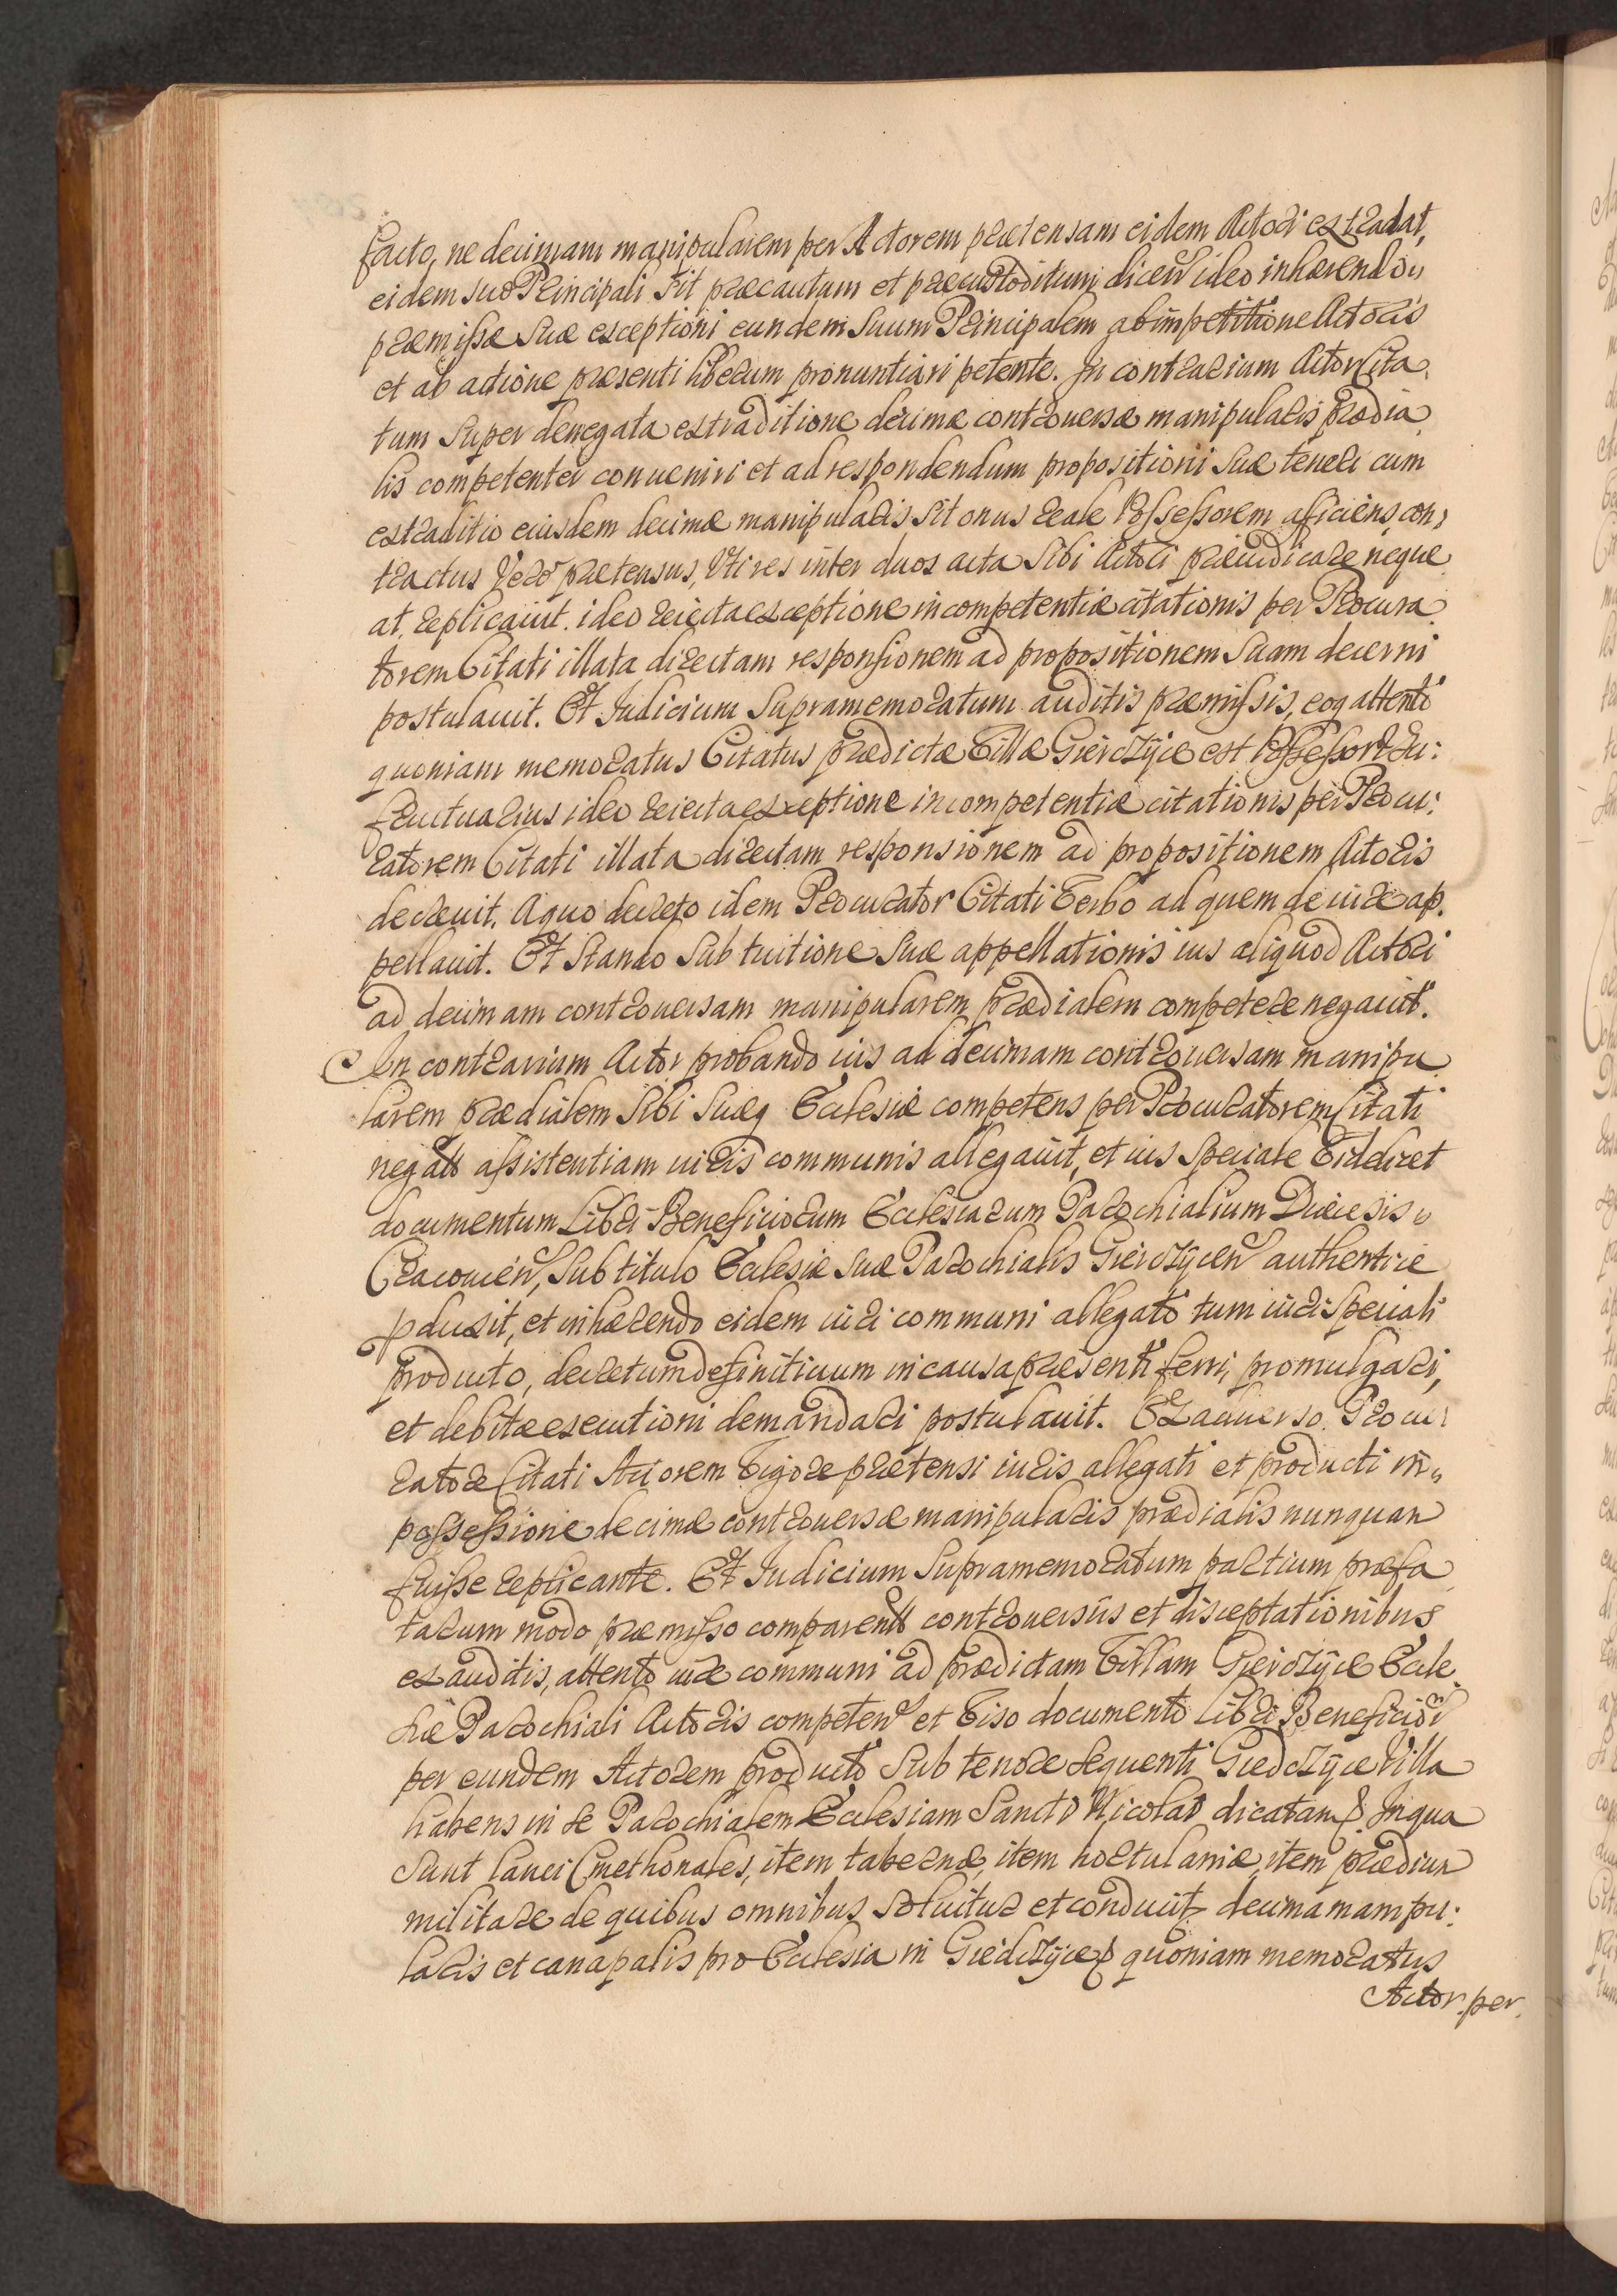 facto, ne decimam manipularem per Actorem prætensam eidem Actori extradat,
eidem suo Principali sit præcautum et præcustoditum dicen̄ ideo inhærendo
præmissæ suæ exceptioni eundem suum Principalem ab impetitione Actoris
et ab actione præsenti liberum pronuntiari petente. In contrarium Actor Cita
tum super denegata extraditione decimæ controuersæ manipularis prædia
lis competenter conueniri et ad respondendum propositioni suæ teneri cum
extraditio eiusdem decimæ manipularis sit onus reale Possessorem afficiens, con:
tractus vero prætensus, Vti res inter duos acta sibi Actori præiudicare neque
at, replicauit. ideo reiecta exceptione incompetentiæ citationis per Procura
torem Citati illata directam responsionem ad propositionem suam decerni
postulauit. Et Iudicium supramemoratum auditis præmissis, eoq attento
quoniam memoratus Citatus prædictæ Villæ Gierczyce est Possessor Vsu:
fructuarius ideo reiecta exceptione incompetentiæ citationis per Procu:
ratorem Citati illata directam responsionem ad propositionem Actoris
decreuit. A quo decreto idem Procurator Citati Verbo ad quem de iure ap.
pellauit. Et stando sub tuitione suæ appellationis ius aliquod Actori
ad decimam controuersam manipularem prædialem competere negauit.
In contrarium Actor probando ius ad decimam controuersam manipu
larem prædialem sibi suæq Ecclesiæ competens per Procuratorem Citati
negatū assistentiam iuris communis allegauit, et ius speciale Videlicet
documentum Libri Beneficiorum Ecclesiarum Parochialium Diæcesis
Cracouien̄, sub titulo Ecclesiæ suæ Parochialis Gierczycen̄ authentice
pduxit, et inhærendo eidem iuri communi allegato tum iuri speciali
producto, decretum definitiuum in causa præsenti ferri, promulgari,
et debitæ executioni demandari postulauit. Ex aduerso Procu:
ratore Citati Actorem Vigore prætensi iuris allegati et producti in
possessione decimæ controuersæ manipularis prædialis nunquam
fuisse replicante. Et Iudicium supramemoratum partium præfa
tarum modo præmisso comparen̄tī controuersiis et disceptationibus
exauditis, attento iure communi ad prædictam Villam Gierczyce Eccle
siæ Parochiali Actoris competen̄ et Viso documento Libri Beneficiorū
per eundem Actorem producto sub tenore sequenti Giedczyce Villa
habens in se Parochialem Ecclesiam Sancto Nicolao dicatam & In qua
sunt lanei Cmethonales, item tabernæ, item hortulaniæ, item prædium
militare de quibus omnibus soluitur et conducit decima manipu:
laris et canapalis pro Ecclesia in Giedczyce & quoniam memoratus
Actor per